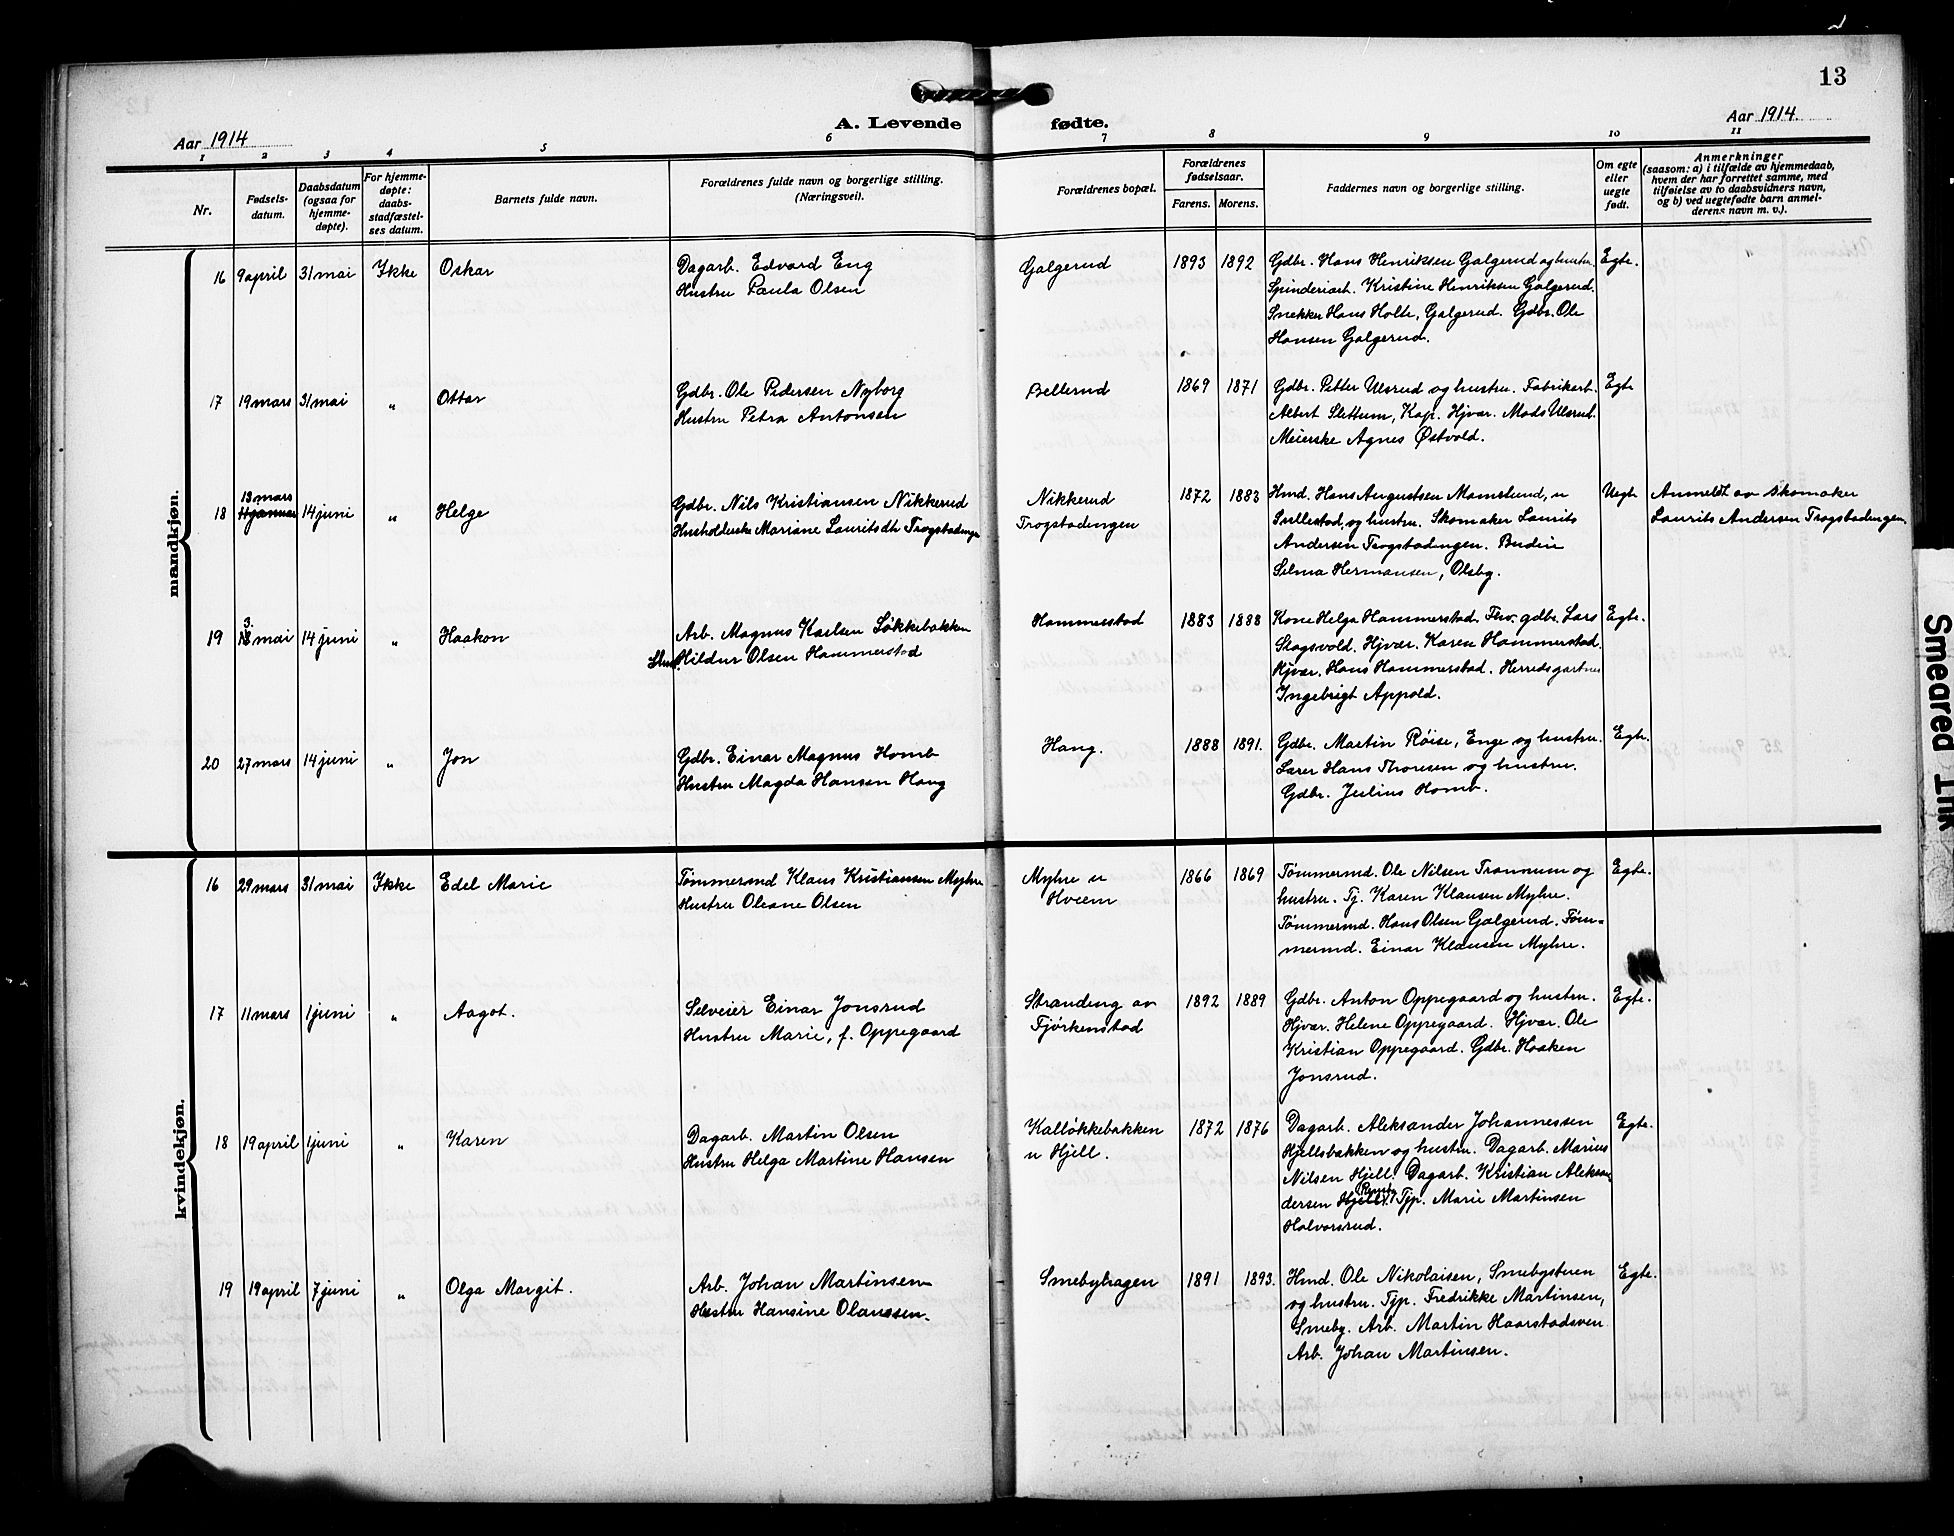 13
Aar 1914
A. Levende fødte.
Aar 1914.
1 2 3 4 5 6 7 8 9 10 11
Nr.
Fødsels-
datum.
Daabsdatum
(ogsaa for
hjemme-
døpte).
For hjemme-
døpte:
daabs-
stadfæstel-
ses datum.
Barnets fulde navn.
Forældrenes fulde navn og borgerlige stilling.
(Næringsvei).
Forældrenes bopæl.
Forældrenes
fødselsaar.
Farens. Morens.
Faddernes navn og borgerlige stilling.
Om egte
eller
uegte
født.
Anmerkninger
(saasom: a) i tilfælde av hjemmedaab,
hvem der har forrettet samme, med
tilføielse av to daabsvidners navn,
og b) ved uegtefødte barn anmel-
derens navn m. v.).
mandkjøn.
16 9 april 31 mai Ikke Oskar
Dagarb. Edvard Eng
Hustru Paula Olsen
Galgerud
1893 1892
Gdbr. Hans Henriksen Galgerud og hustru.
Spinderiarb. Kristine Henriksen Galgerud.
Snekker Hans Holte, Galgerud. Gdbr. Ole
Hansen Galgerud.
Egte.
17 19 mars 31 mai „ Ottar
Gdbr. Ole Pedersen Nyborg
Hustru Petra Antonsen
Bellerud
1869 1871
Gdbr. Petter Ulsrud og hustru. Fabrikarb.
Albert Slettum, Kap. Hjvær. Mads Ulsrud.
Meierske Agnes Østvold.
Egte
18 13 mars 11 januar 14 juni „ Helge
Gdbr. Nils Kristiansen Nikkerud
Husholderske Mariane Lauritsdtr Trogstadengen
Nikkerud
Trogstadengen
1872 1883
Hmd. Hans Augustsen Mamslund, u
Sullestad, og hustru. Skomaker Laurits
Andersen Trogstadengen. Budeie
Selma Hermansen, Olsby.
Uegte
Anmeldt av skomaker
Laurits Andersen Trogstadengen
19 3. mai 14 juni „ Haakon
Arb. Magnus Karlsen Løkkebakken
Hustru Hildur Olsen Hammerstad
Hammerstad
1883 1888
Kone Helga Hammerstad. Fhv. gdbr. Lars
Slagsvold. Hjvær. Karen Hammerstad.
Hjvær. Hans Hammerstad. Herredsgartner
Ingebrigt Appold.
Egte.
20 27 mars 14 juni „ Jon
Gdbr. Einar Magnus Homb
Hustru Magda Hansen Haug
Haug.
1888 1891.
Gdbr. Martin Røise, Enge og hustru.
Lærer Hans Thoresen og hustru.
Gdbr. Julius Homb.
Egte.
kvindekjøn.
16 29 mars 31 mai Ikke Edel Marie
Tømmermd Klaus Kristiansen Myhre
Hustru Oleane Olsen
Myhre u
Hveem
1866 1869
Tømmermd. Ole Nilsen Tranmum og
hustru. Tj. Karen Klausen Myhre.
Tømmermd. Hans Olsen Galgerud. Tøm-
mermd. Einar Klausen Myhre.
Egte.
17 11 mars 1 juni „ Aagot.
Selveier Einar Jonsrud
Hustru Marie, f. Oppegaard
Strandeng av
Fjørkenstad
1892 1889
Gdbr. Anton Oppegaard og hustru.
Hjvær. Helene Oppegaard. Hjvær. Ole
Kristian Oppegaard. Gdbr. Haaken
Jonsrud.
Egte.
18 19 april 1 juni „ Karen
Dagarb. Martin Olsen
Hustru Helga Martine Hansen
Kalløkkebakken
u Hjell.
1872 1876
Dagarb. Aleksander Johannessen
Hjellsbakken og hustru. Dagarb. Marius
Nilsen Hjell. Dagarb. Kristian Aleksan-
dersen Hjell. Tjp. Marie Martinsen
Halvorsrud.
Egte.
19 19 april 7 juni „ Olga Margit.
Arb. Johan Martinsen
Hustru Hansine Olaussen.
Smebyhagen
1891 1893.
Hmd. Ole Nikolaisen, Smebystuen
og hustru. Tjp. Fredrikke Martinsen,
Smeby. Arb. Martin Haarstadsven
Arb. Johan Martinsen.
Egte.
Smeared Ink